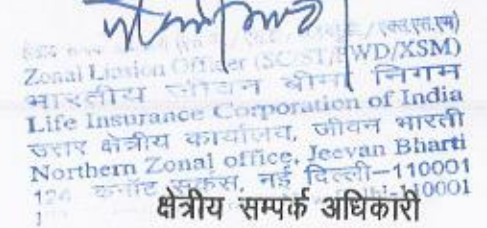 (एक्स.एस.एम)
Zonal Liasion Officer (SC/ST/PWD/XSM)
भारतीय जीवन बीमा निगम
Life Insurance Corporation of India
उत्तर क्षेत्रीय कार्यालय, जीवन भारती
Northern Zonal office, Jeevan Bharti
124 कनॉट सर्कस, नई दिल्ली-110001
110001
क्षेत्रीय सम्पर्क अधिकारी